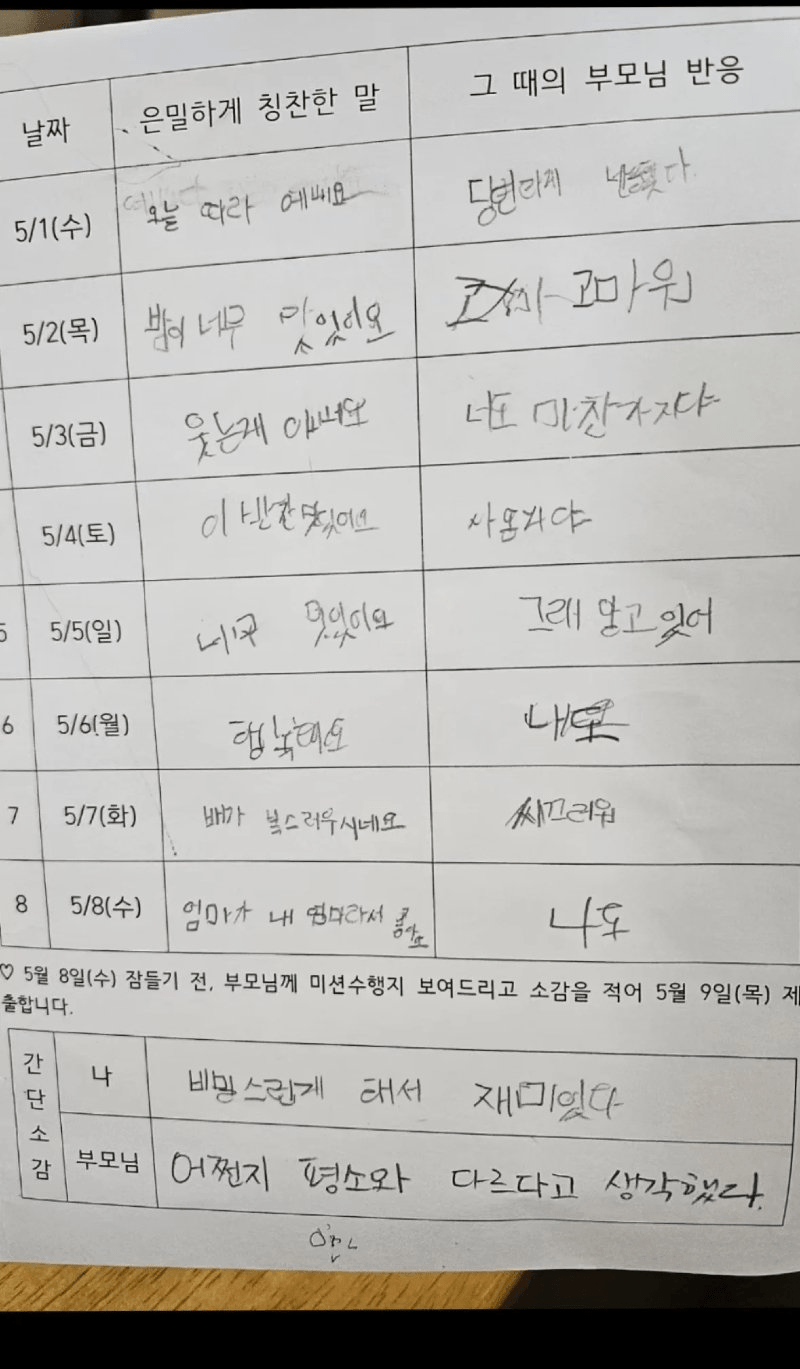 날짜 은밀하게 칭찬한 말 그 때의 부모님 반응
5/1(수) 오늘 따라 예뻐요 당번라게
5/2(목) 밥이 너무 맛잇이요 고마워
5/3(금) 웃는게 너도 마찬가지다
5/4(토) 이 반찬 맛잇어요
5 5/5(일) 너무 멋잇이요 그래 알고 잇어
6 5/6(월) 행복해요 내도
7 5/7(화) 배가 복스러우시네요 씨끄러워
8 5/8(수) 엄마가 내 엄마라서 좋아요 나도
♡ 5월 8일(수) 잠들기 전, 부모님께 미션수행지 보여드리고 소감을 적어 5월 9일(목) 제
출합니다.
간단소감
나 비밍스런게 해서 재미있다
부모님 어쩐지 평소와 다르다고 생각했다.